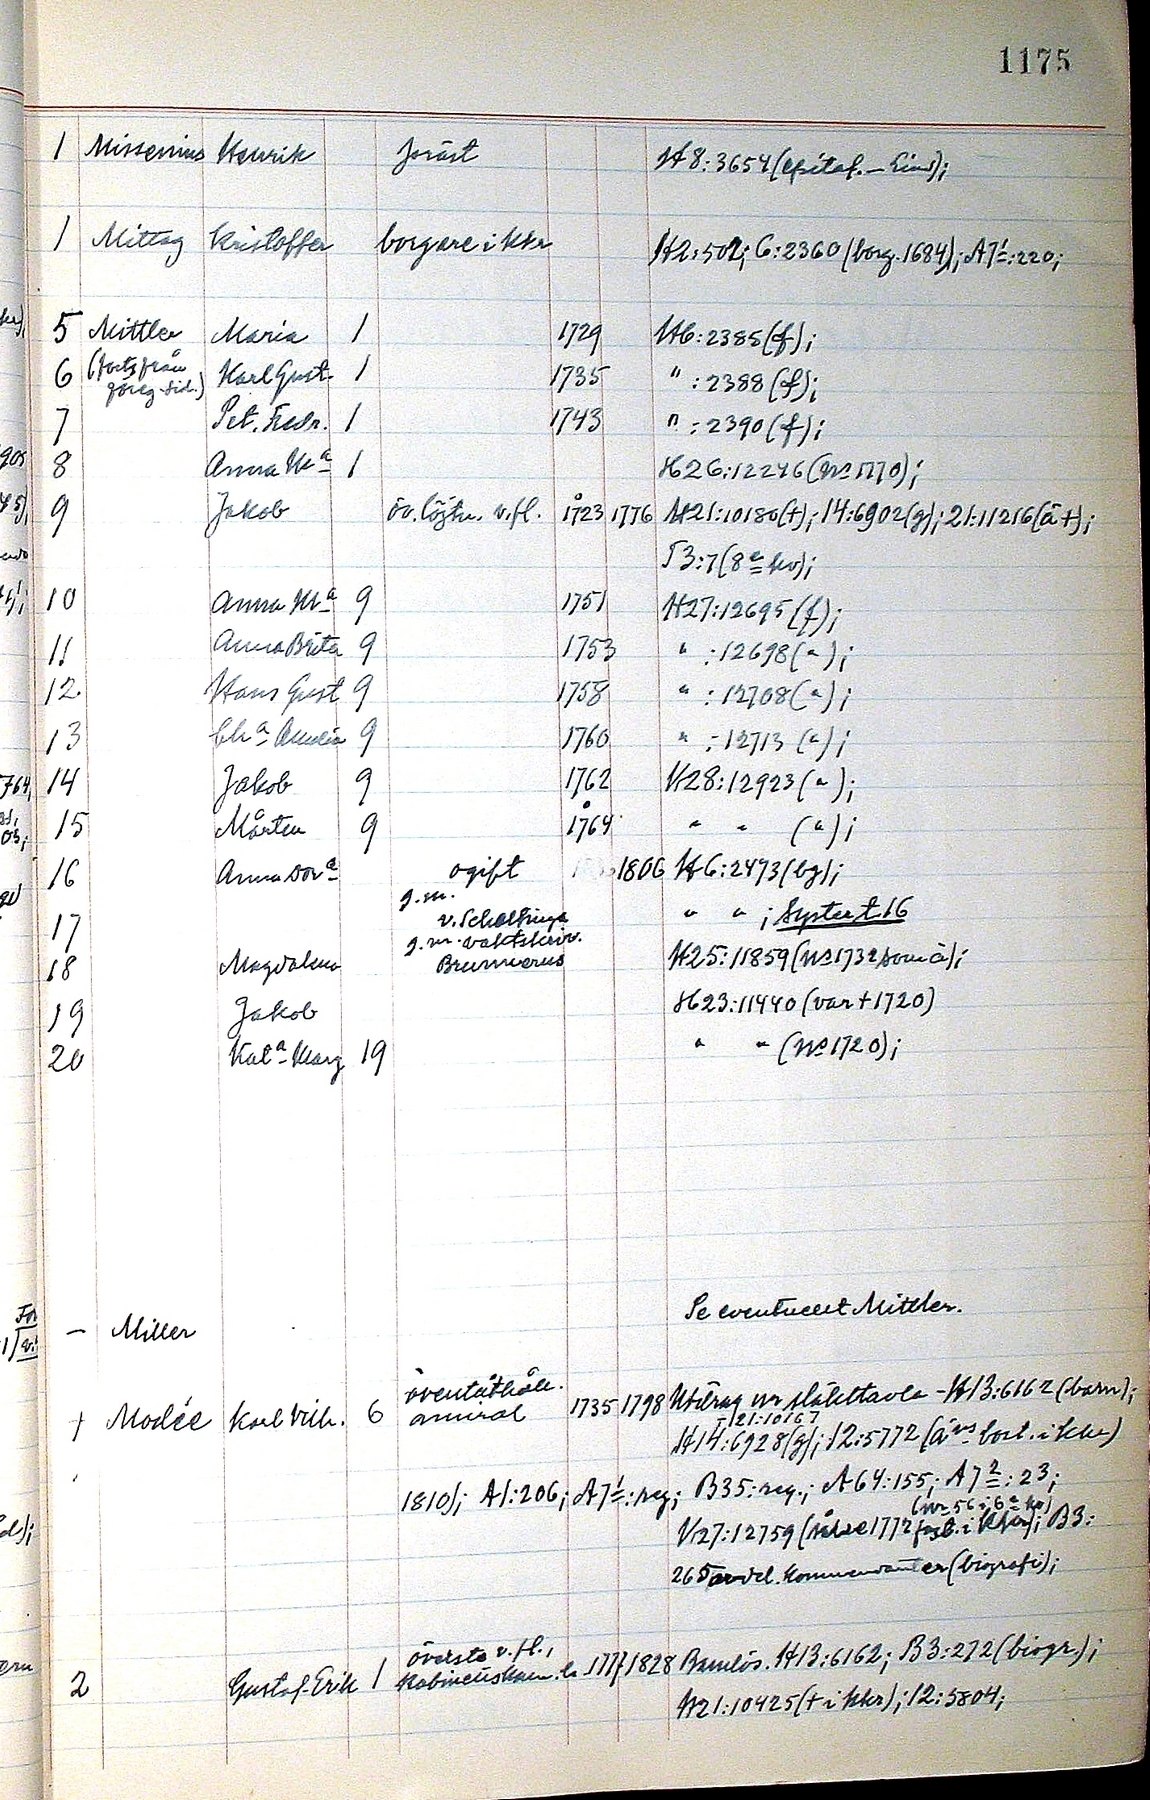 1175
1 Missenius Henrik präst H8:3654 (epitaf.
1 Mittag Kristoffer borgare i kkr H2:502; 6:2360 (borg. 1684); A7¹:220;
5 Mittler Maria 1 1729 H6:2385 (f);
6 (forts från föreg. sid.) Karl Gust. 1 1735 " :2388 (f);
7 Pet. Fredr. 1 1743 " :2390 (f);
8 Anna Mª 1 H26:12246 (nº 1770);
9 Jakob öv. löjtn. v. fl. 1723 1776 H21:10180 (†); 14:6902 (g); 21:11216 (ä †);
53:7 (8ª kv);
10 Anna Mª 9 1751 H27:12695 (f);
11 Anna Brita 9 1753 " :12698 (");
12 Hans Gust 9 1758 " :12708 (");
13 Chª Amalia 9 1760 " :12713 (");
14 Jakob 9 1762 H28:12923 (");
15 Mårten 9 1764 " " (");
16 Anna Dorª ogift 1806 H6:2473 (bg);
17 g.m. v. Scheltinga " " ; Syster t. 16
18 Magdalena g.m. vaktskriv. Brunnerus H25:11859 (nº 1732 som ä);
19 Jakob H23:11440 (var † 1720)
20 Katª Marg 19 " " (nº 1720);
Se eventuellt Mittler.
— Miller
1 Modée Karl Vilh. 6 överståthåll. amiral 1735 1798 Utdrag ur släkttavla - H13:6162 (barn);
21:10167
H14:6928 (g); 12:5772 (äns bost. i kkr)
1810); A1:206; A7¹:reg; B35:reg.; A64:155; A7²:23;
(nr 56 i 6ª kv)
H27:12759 1772 fast. i kkr); B3:
265 kommendanter (biografi);
2 Gustaf Erik 1 överste v. fl., 1777 1828 Barnlös. H13:6162; B3:272 (biogr.);
H21:10425 († i kkr); 12:5804;